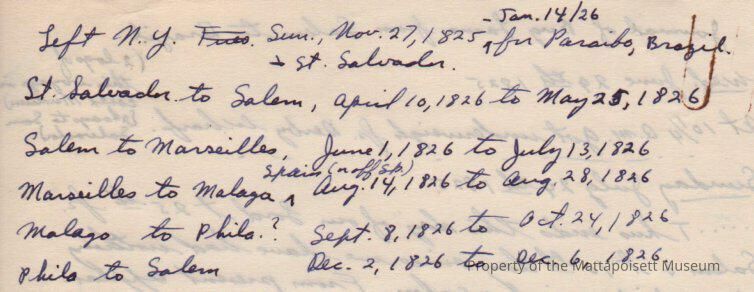 - Jan. 14/26
Left N.Y. Tues. Sun., Nov. 27, 1825 ^ for Paraibo, Brazil.
→ St. Salvador.
St. Salvador to Salem, April 10, 1826 to May 25, 1826
Salem to Marseilles, June 1, 1826 to July 13, 1826
Spain (n off Sp.)
Marseilles to Malaga ^ Aug. 14, 1826 to Aug. 28, 1826
Malago to Phila.? Sept. 8, 1826 to Oct. 24, 1826
Phila to Salem Dec. 2, 1826 to Dec. 6, 1826.
Property of the Mattapoisett Museum